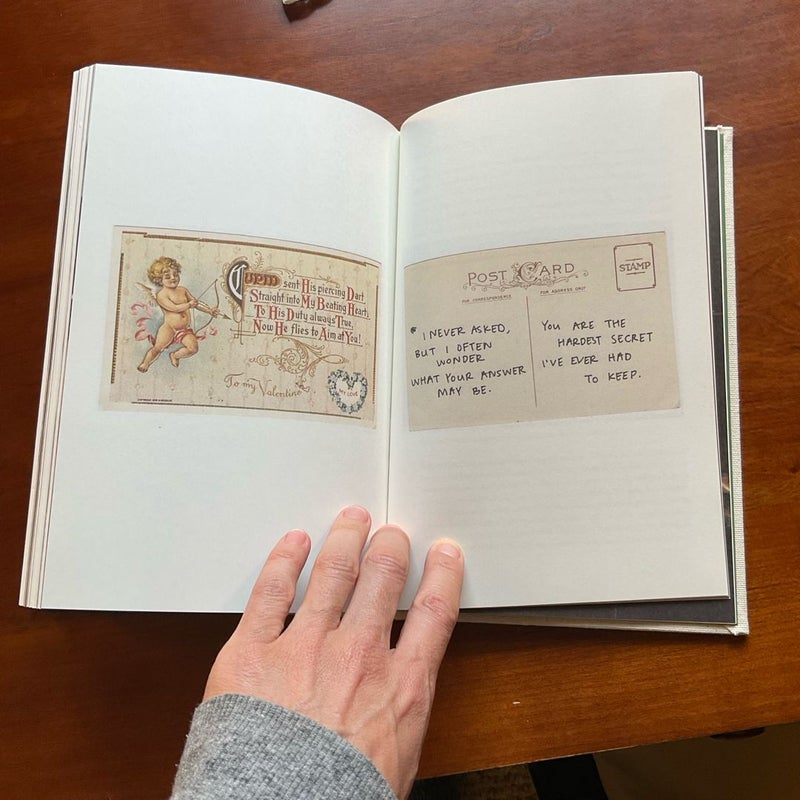 Cupid sent His piercing Dart
Straight into My Beating Heart,
To His Duty always True,
Now He flies to Aim at You!
To my Valentine
MY LOVE
POST CARD
FOR CORRESPONDENCE
FOR ADDRESS ONLY
STAMP
I NEVER ASKED,
BUT I OFTEN
WONDER
WHAT YOUR ANSWER
MAY BE.
YOU ARE THE
HARDEST SECRET
I'VE EVER HAD
TO KEEP.